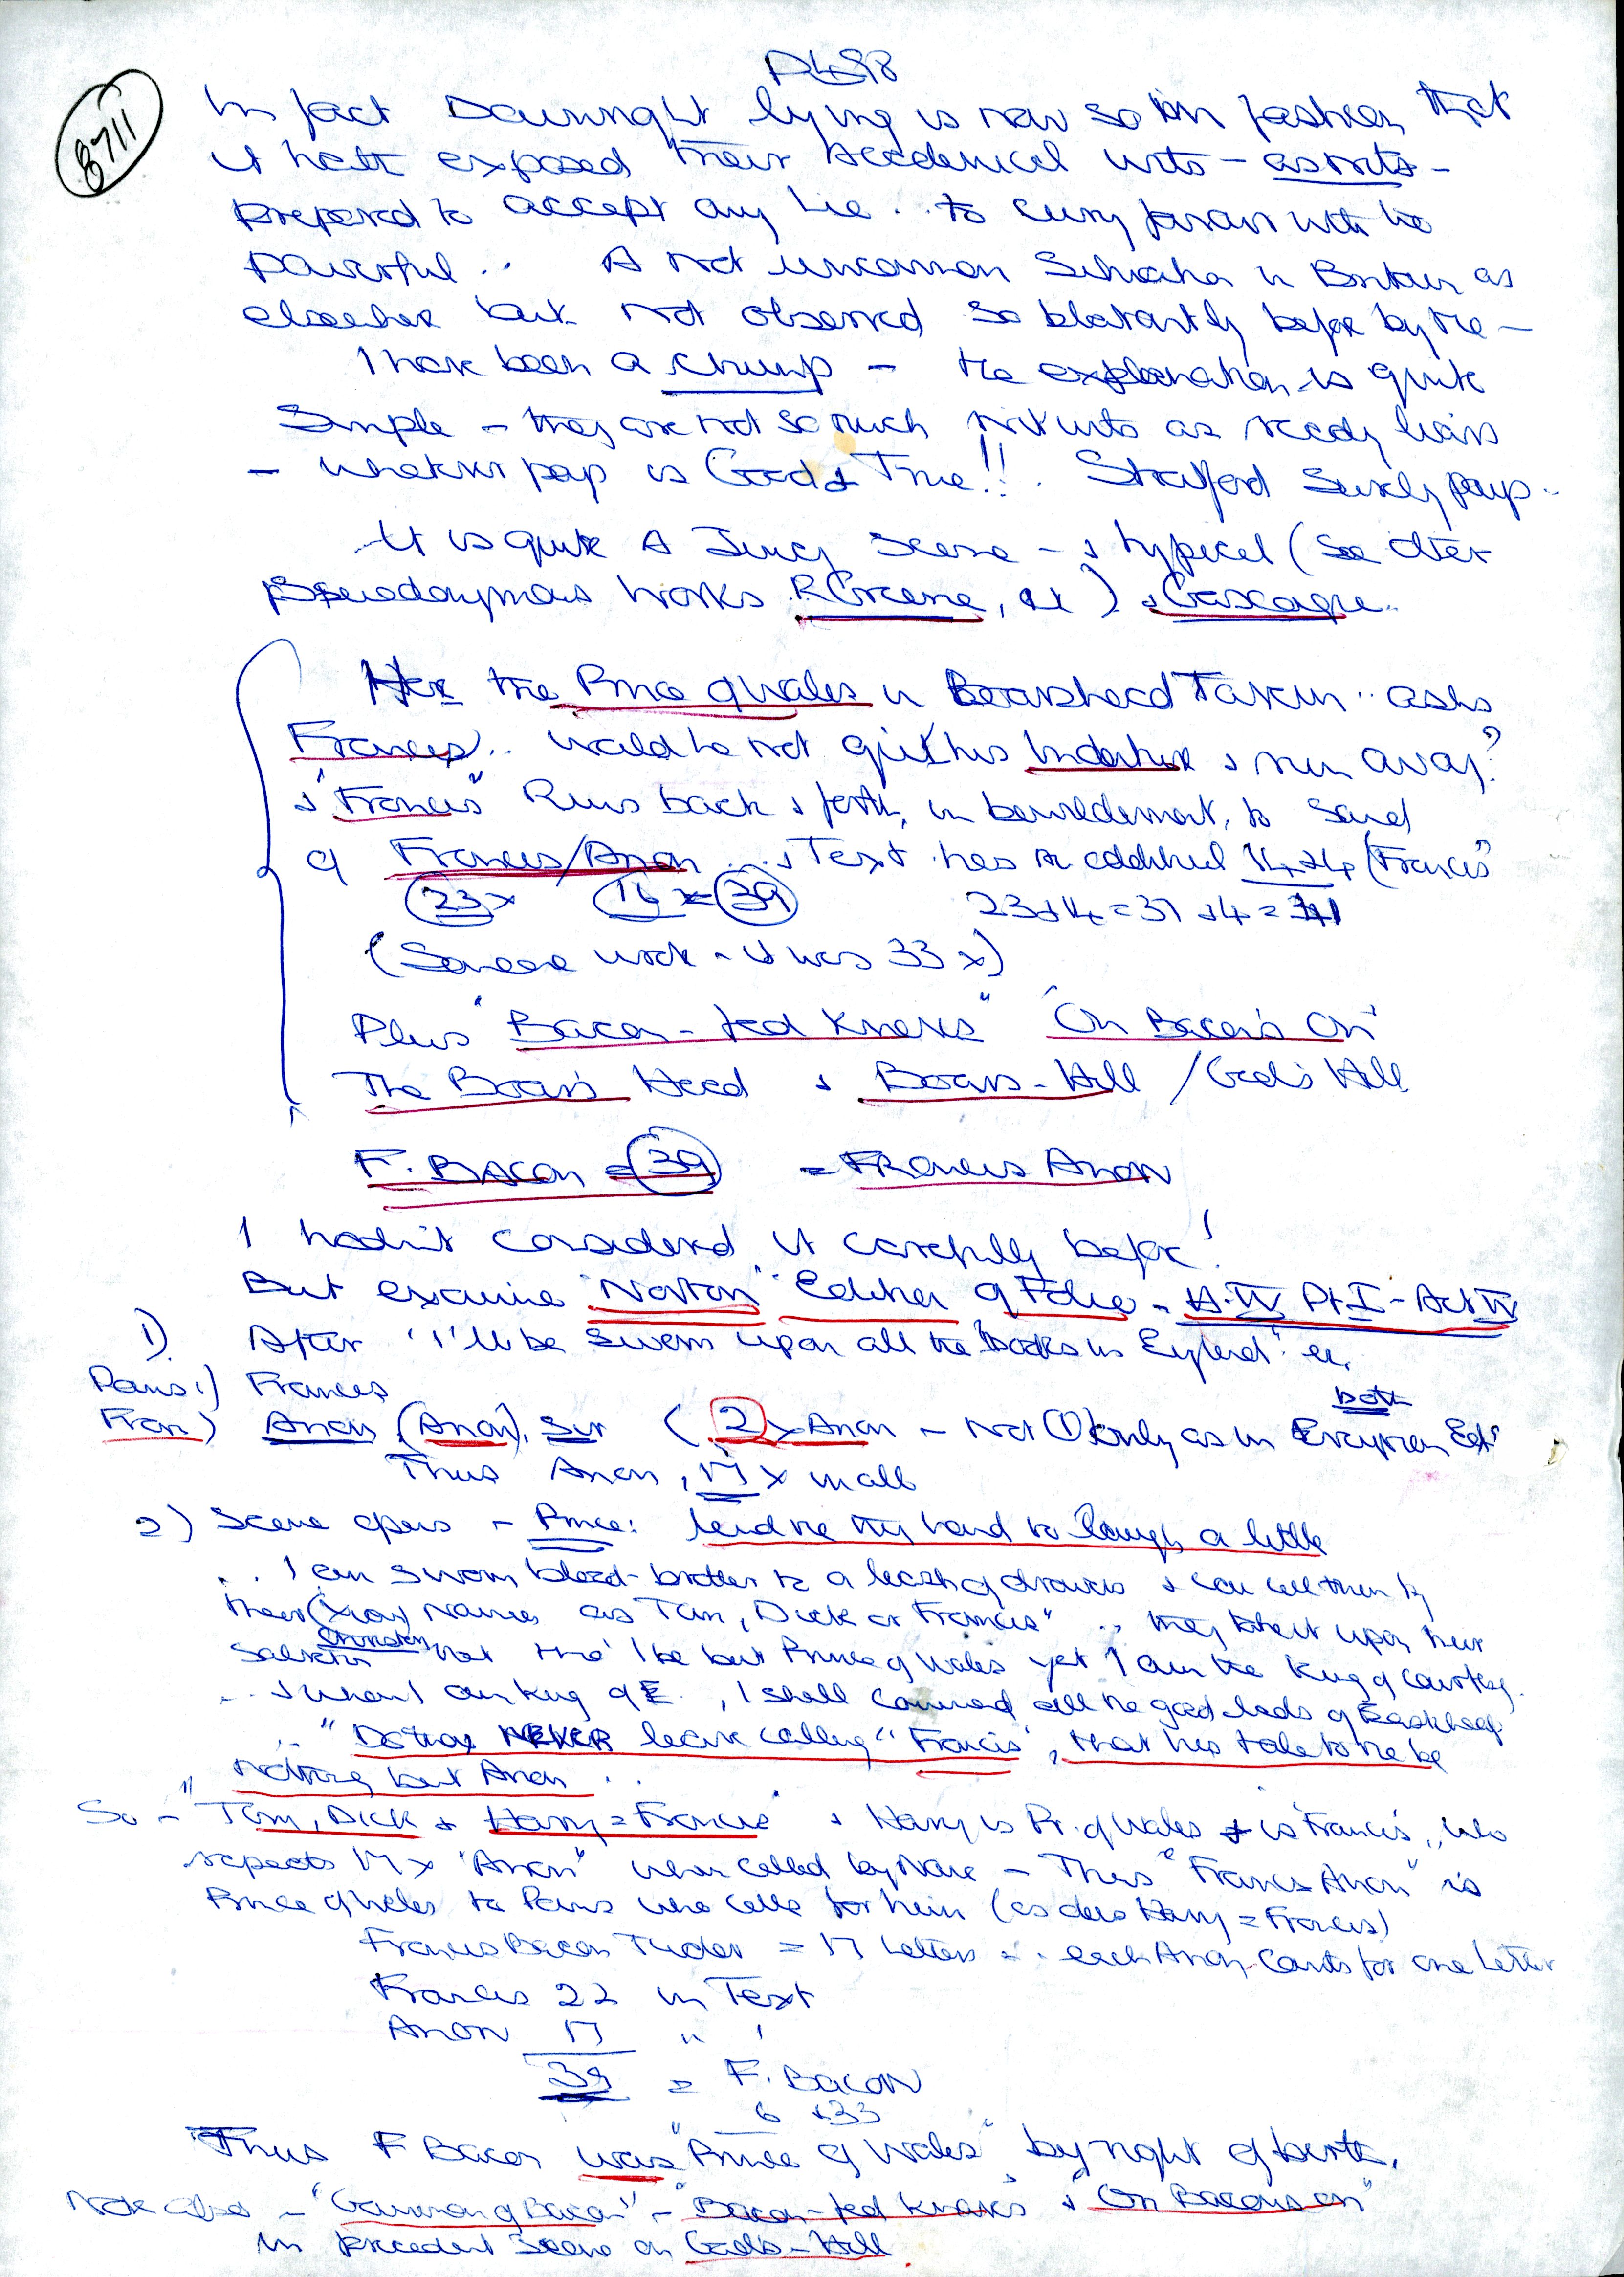 8711
In fact Downright lying is now so in fashion that
it hath exposed their Academical wits - as nits -
prepared to accept any Lie .. to curry favour with the
powerful .. A not uncommon Situation in Britain as
elsewhere but not observed so blatantly before by me -
I have been a chump - the explanation is quite
Simple - they are not so much nitwits as ready liars
- whatever pays is Good & True!! Stratford Surely pays ..
It is quite A Juicy Scene - & typical (See other
Pseudonymous works R Greene, etc) & Gascoigne ..
Here the Prince of Wales in Boarshead Tavern .. asks
Francis .. would he not quit his Indenture & run away?
& "Francis" Runs back & forth, in bewilderment, to sound
of Francis/Anon ... & Text has an additional 14 + 4 (Francis"
23x 16x = 39 23 + 14 = 37 + 4 = 41
(Someone wrote - it was 33 x)
Plus "Bacon-fed Knaves" "On Bacons On"
The Boar's Head & Boars-Hill / Gad's Hill
F. BACON = 39 = FRANCIS ANON
I hadn't considered it carefully before!
But examine "Norton" Edition of Folio - H.IV Pt.I - Act IV
1) After "I'll be sworn upon all the books in England" etc.
Poins:) Francis
Fran) Anon (Anon), Sir (2 x Anon - not (1) only as in both Everyman Edt
Thus Anon, 17 x in all
2) Scene opens - Prince: lend me thy hand to laugh a little
.. I am sworn blood-brother to a leash of drawers & can call them by
their (Xian) Names as Tom, Dick or Francis" .. they take it upon their
Christian
salvation that tho' I be but Prince of Wales yet I am the King of Courtesy.
.. & when I am King of E., I shall command all the good lads of Eastcheap
.. "Do thou NEVER leave calling "Francis", that his tale to me be
nothing but Anon" ..
So - "Tom, Dick & Harry = Francis" & Harry is Pr. of Wales & is "Francis", who
repeats 17 x "Anon" when called by Name - Thus "Francis Anon" is
Prince of Wales to Poins who calls for him (as does Harry = Francis)
Francis Bacon Tudor = 17 Letters = .. each Anon Counts for one Letter
Francis 22 in Text
Anon 17 " "
39 = F. BACON
6 + 33
Thus F Bacon was "Prince of Wales" by right of birth.
Note also - "Gammon of Bacon" - "Bacon-fed Knaves" & "On Bacons on"
in precedent Scene on Gads-Hill.